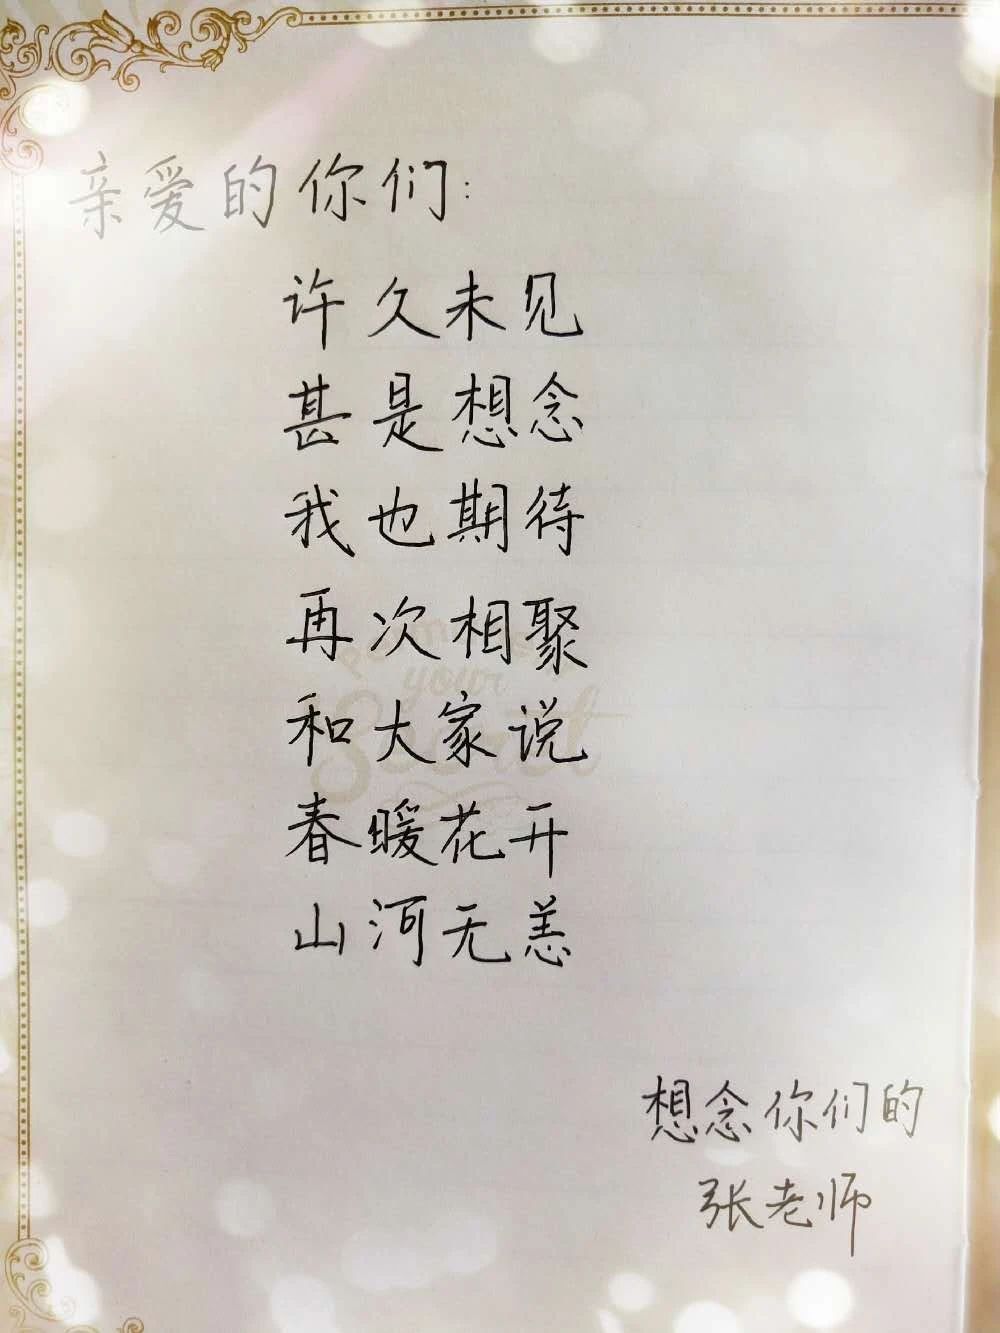 亲爱的你们:
许久未见
甚是想念
我也期待
再次相聚
和大家说
春暖花开
山河无恙
想念你们的
张老师
your
Secret